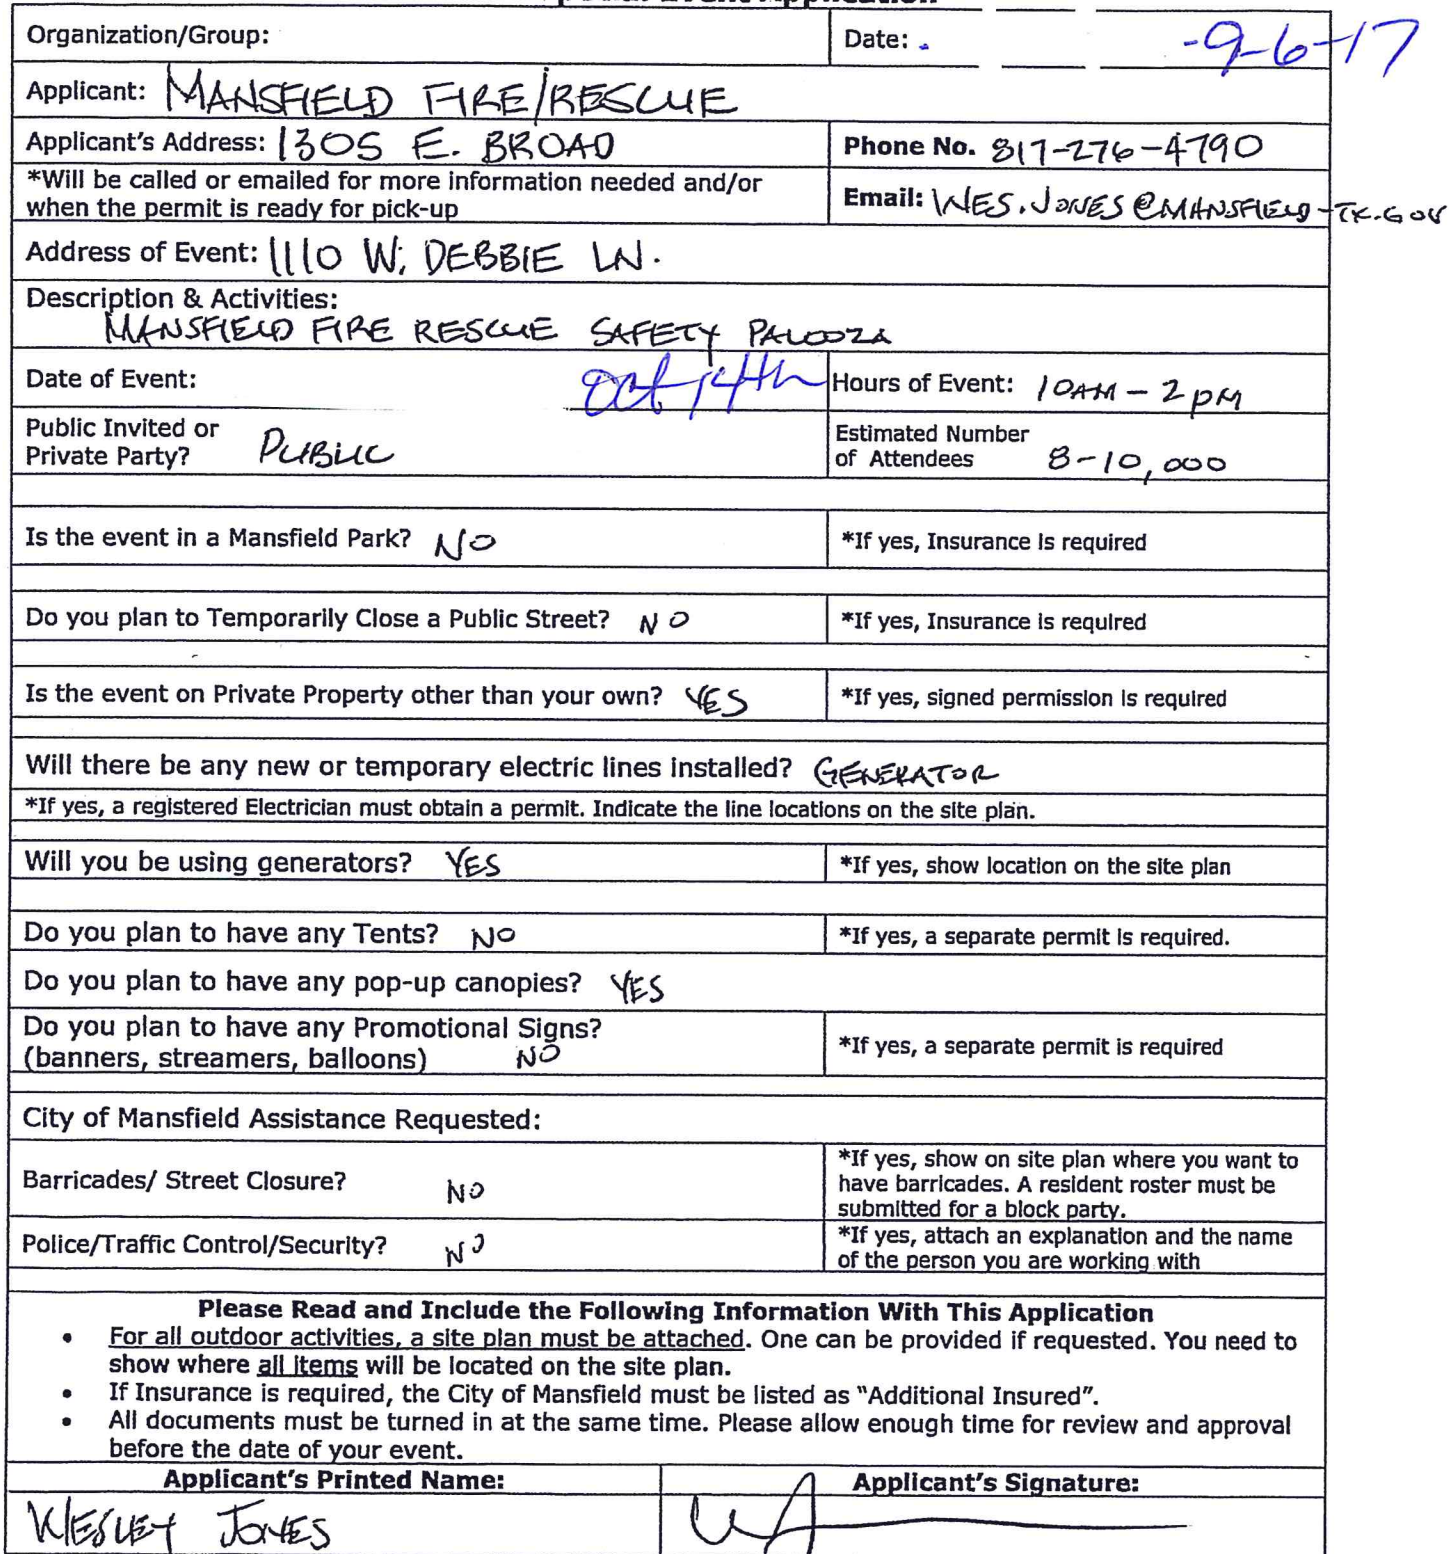 Event Application
Organization/Group:
Date: -9-6-17
Applicant: MANSFIELD FIRE/RESCUE
Applicant's Address: 1305 E. BROAD
Phone No. 817-276-4790
*Will be called or emailed for more information needed and/or
when the permit is ready for pick-up
Email: WES.JONES@MANSFIELD-TX.GOV
Address of Event: 1110 W. DEBBIE LN.
Description & Activities:
MANSFIELD FIRE RESCUE SAFETY PALOOZA
Date of Event: Oct 14th
Hours of Event: 10AM - 2PM
Public Invited or
Private Party? PUBLIC
Estimated Number
of Attendees 8-10,000
Is the event in a Mansfield Park? NO
*If yes, Insurance is required
Do you plan to Temporarily Close a Public Street? NO
*If yes, Insurance is required
Is the event on Private Property other than your own? YES
*If yes, signed permission is required
Will there be any new or temporary electric lines installed? GENERATOR
*If yes, a registered Electrician must obtain a permit. Indicate the line locations on the site plan.
Will you be using generators? YES
*If yes, show location on the site plan
Do you plan to have any Tents? NO
*If yes, a separate permit is required.
Do you plan to have any pop-up canopies? YES
Do you plan to have any Promotional Signs?
(banners, streamers, balloons) NO
*If yes, a separate permit is required
City of Mansfield Assistance Requested:
Barricades/ Street Closure? NO
*If yes, show on site plan where you want to
have barricades. A resident roster must be
submitted for a block party.
Police/Traffic Control/Security? NO
*If yes, attach an explanation and the name
of the person you are working with
Please Read and Include the Following Information With This Application
• For all outdoor activities, a site plan must be attached. One can be provided if requested. You need to
show where all items will be located on the site plan.
• If Insurance is required, the City of Mansfield must be listed as "Additional Insured".
• All documents must be turned in at the same time. Please allow enough time for review and approval
before the date of your event.
Applicant's Printed Name:
Applicant's Signature:
WESLEY JONES